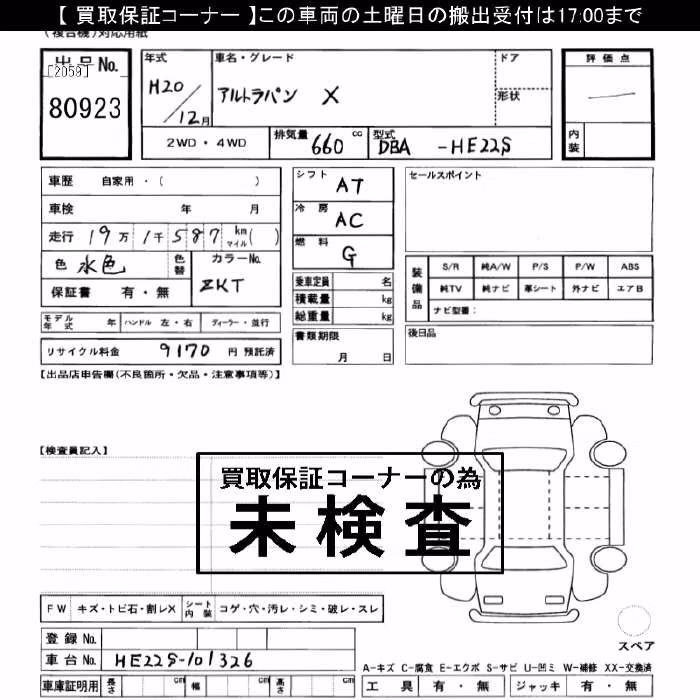 【 買取保証コーナー 】この車両の土曜日の搬出受付は17:00まで
(複合機)対応用紙
出品No.
[2059]
80923
年式
H20/12月
車名・グレード
アルトラパン X
ドア
形状
評価点
内装
2WD・4WD
排気量 660 cc
型式 DBA -HE22S
車歴 自家用・( )
車検 年 月
走行 19万1千587 km マイル( )
色 水色
色替
カラーNo. ZKT
保証書 有・無
シフト AT
冷房 AC
燃料 G
乗車定員 名
積載量 kg
総重量 kg
書類期限 月 日
セールスポイント
装備品
S/R 純A/W P/S P/W ABS
純TV 純ナビ 革シート 外ナビ エアB
ナビ型番：
後日品
モデル年式 年 ハンドル 左・右 ディーラー・並行
リサイクル料金 9170 円 預託済
【出品店申告欄(不良箇所・欠品・注意事項等)】
【検査員記入】
買取保証コーナーの為
未検査
FW キズ・トビ石・割レX シート内装 コゲ・穴・汚レ・シミ・破レ・スレ
登録No.
車台No. HE22S-101326
車庫証明用 長さ cm 幅 cm 高さ cm
スペア
A-キズ C-腐食 E-エクボ S-サビ U-凹ミ W-補修 XX-交換済
工具 有・無 ジャッキ 有・無